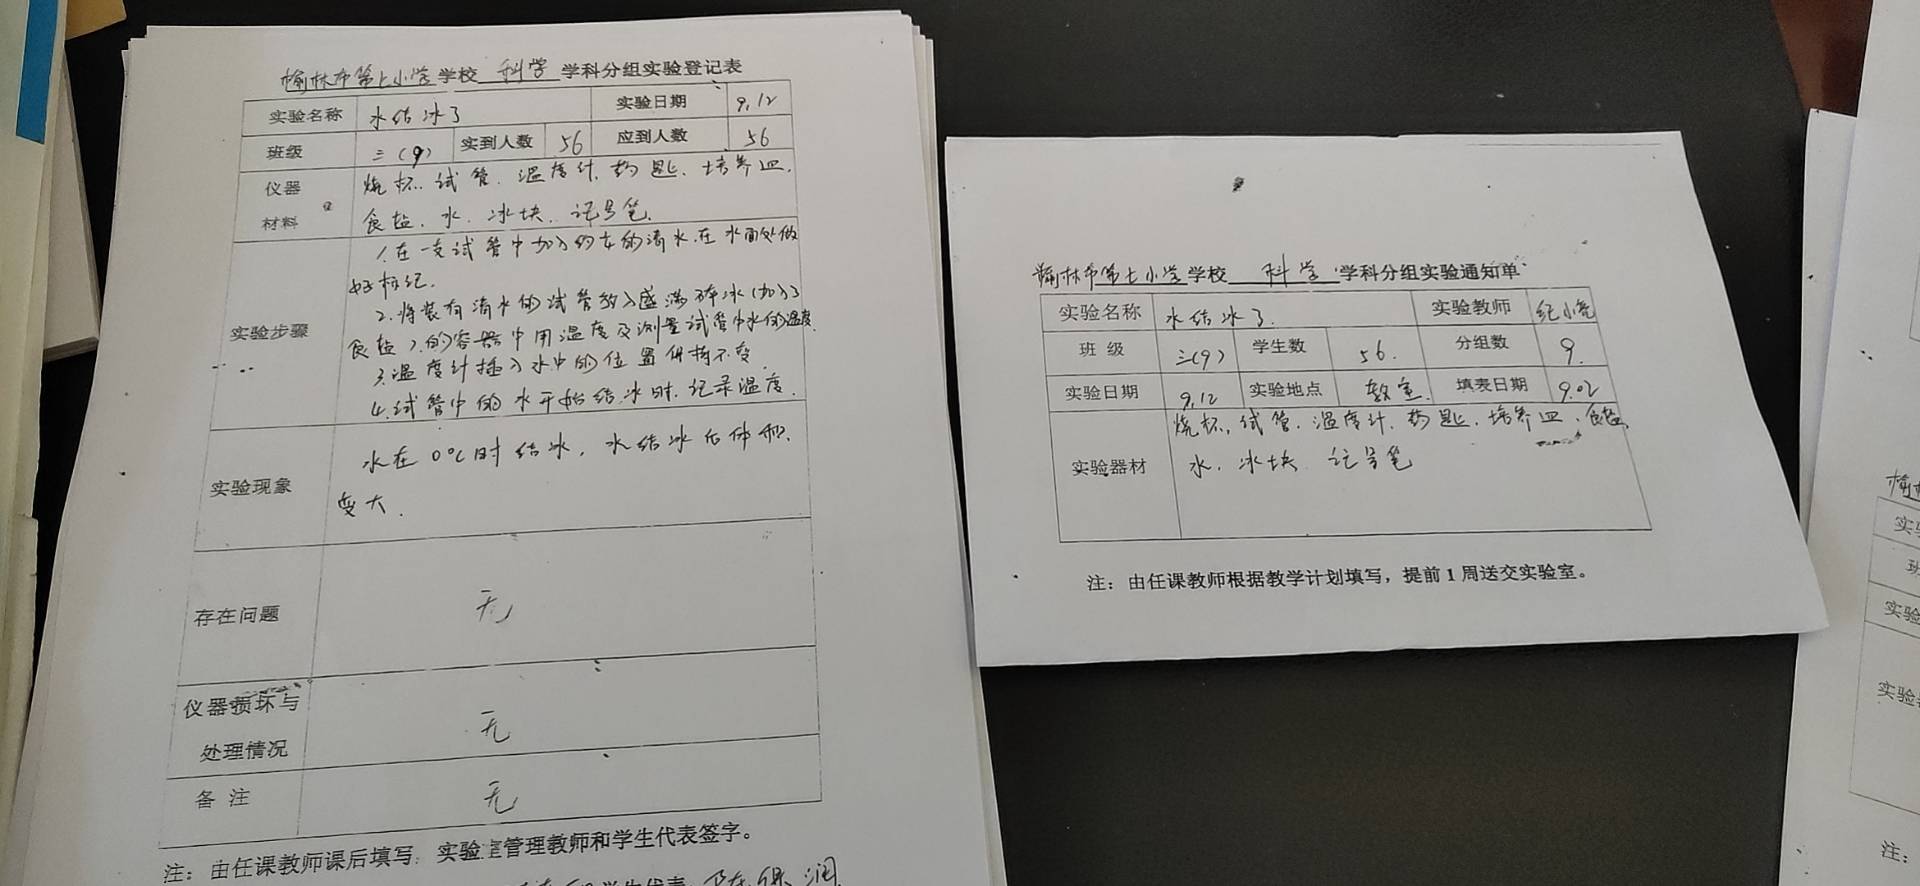 榆林市第七小学学校 科学 学科分组实验登记表
实验名称 水结冰了 实验日期 9.12
班级 三(9) 实到人数 56 应到人数 56
仪器 烧杯、试管、温度计、药匙、培养皿、
材料 食盐、水、冰块、记号笔、
1.在一支试管中加入约 的清水.在水面处做
好标记.
2.将装有清水的试管放入盛满碎冰(加入了
实验步骤
食盐)的容器中用温度及测量试管中水的温度.
3.温度计插入水中的位置保持不变
4.试管中的水开始结冰时.记录温度.
实验现象 水在0℃时结冰,水结冰后体积
变大.
存在问题 无
仪器损坏与
处理情况 无
备 注 无
注:由任课教师课后填写,实验室管理教师和学生代表签字。
学生代表
榆林市第七小学学校 科学 学科分组实验通知单
实验名称 水结冰了. 实验教师 纪小亮
班 级 三(9) 学生数 56. 分组数 9.
实验日期 9.12 实验地点 教室. 填表日期 9.02
烧杯、试管、温度计、药匙、培养皿、食盐、
实验器材 水、冰块 记号笔
注:由任课教师根据教学计划填写,提前1周送交实验室。
榆
实验
班
实验
实验
注: